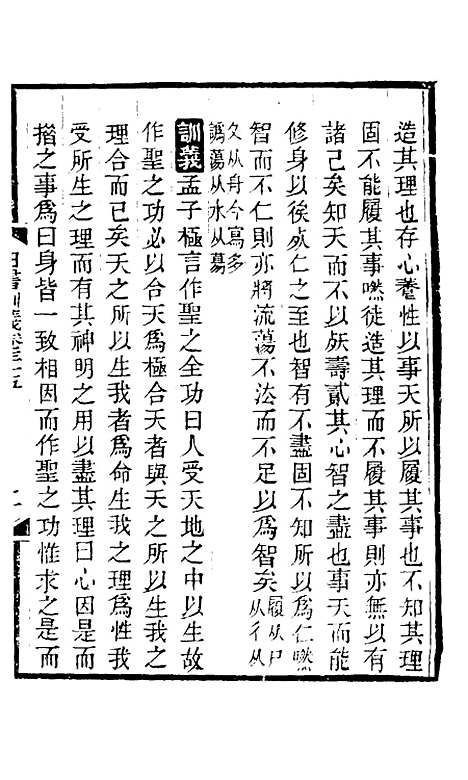 造其理也存心養性以事天所以履其事也不知其理
固不能履其事嘫徒造其理而不履其事則亦無以有
諸己矣知天而不以殀壽貳其心智之盡也事天而能
修身以俟𣦸仁之至也智有不盡固不知所以爲仁嘫
智而不仁則亦將流蕩不法而不足以爲智矣履从尸从彳从
夂从舟今寫多
譌蕩从水从募
訓義孟子極言作聖之全功曰人受天地之中以生故
作聖之功必以合天爲極合天者與天之所以生我之
理合而已矣天之所以生我者爲命生我之理爲性我
受所生之理而有其神明之用以盡其理曰心因是而
措之事爲曰身皆一致相因而作聖之功惟求之是而
四書訓義卷三十五